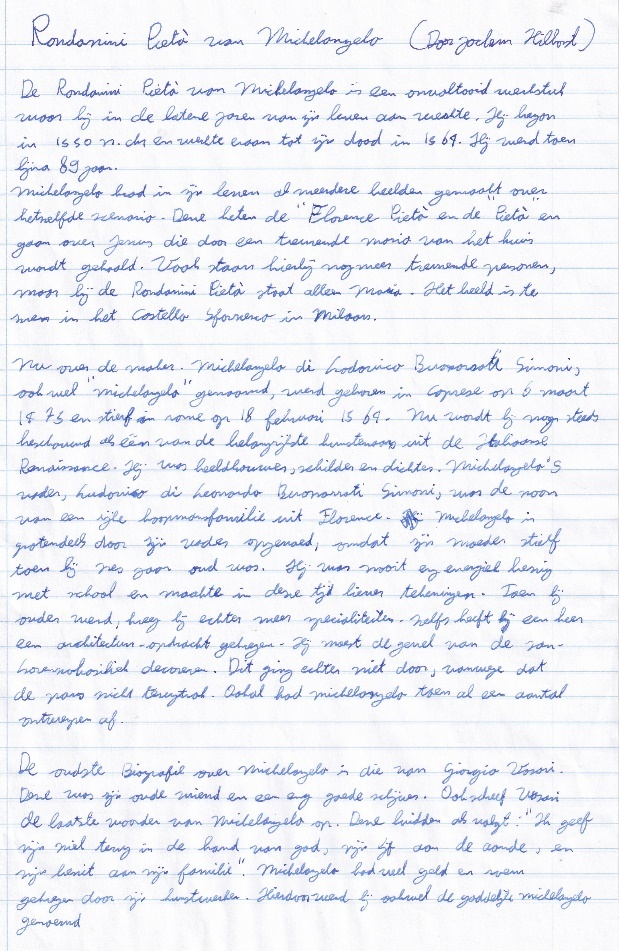 Rondanini Pietà van Michelangelo (Door Jochem Hilbost)
De Rondanini Pietà van Michelangelo is een onvoltooid werkstuk
waar hij in de latere jaren van zijn leven aan werkte. Hij begon
in 1550 n. chr en werkte eraan tot zijn dood in 1564. Hij werd toen
bijna 89 jaar.
Michelangelo had in zijn leven al meerdere beelden gemaakt over
hetzelfde scenario. Deze heten de "Florence Pietà en de "Pietà" en
gaan over Jesus die door een treurende maria van het kruis
wordt gehaald. Vaak staan hierbij nog meer treurende personen,
maar bij de Rondanini Pietà staat alleen Maria. Het beeld is te
zien in het Castello Sforzesco in Milaan.
Nu over de maker. Michelangelo di Lodovico Buonarroti Simoni,
ook wel "michelangelo" genoemd, werd geboren in Caprese op 6 maart
1475 en stierf in rome op 18 februari 1564. Nu wordt hij nog steeds
beschouwd als één van de belangrijkste kunstenaars uit de Italiaanse
Renaissance. Hij was beeldhouwer, schilder en dichter. Michelangelo's
vader, Ludovico di Leonardo Buonarroti Simoni, was de zoon
van een rijke koopmansfamilie uit Florence. Michelangelo is
grotendeels door zijn vader opgevoed, omdat zijn moeder stierf
toen hij zes jaar oud was. Hij was nooit erg energiek bezig
met school en maakte in deze tijd liever tekeningen. Toen hij
ouder werd, kreeg hij echter meer specialiteiten. zelfs heeft hij een keer
een architectuur-opdracht gekregen. Hij moest de gevel van de san-
decoreren. Dit ging echter niet door, vanwege dat
de paus zich terugtrok. Ookal had michelangelo toen al een aantal
ontwerpen af.
De oudste Biografie over Michelangelo is die van Giorgio Vasari.
Deze was zijn oude vriend en een erg goede schrijver. Ook schreef Vasari
de laatste woorden van Michelangelo op. Deze luidden als volgt: "Ik geef
mijn ziel terug in de hand van god, mijn lijf aan de aarde, en
mijn bezit aan mijn familie". Michelangelo had veel geld en roem
gekregen door zijn kunstwerken. Hierdoor werd hij ookwel de goddelijke michelangelo
genoemd